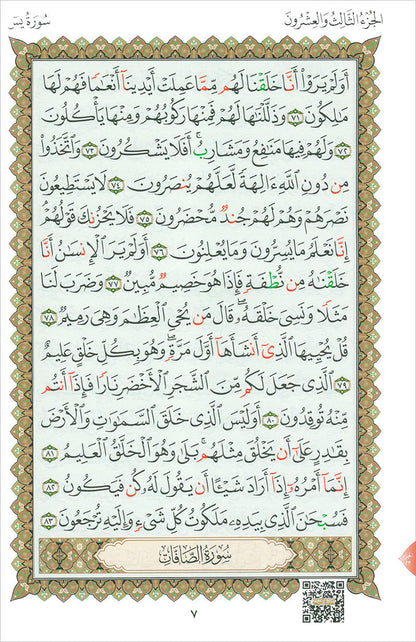 الجُزْءُ الثَّالِثُ وَالْعِشْرُونَ
سُورَةُ يسٓ
أَوَلَمْ يَرَوْا۟ أَنَّا خَلَقْنَا لَهُم مِّمَّا عَمِلَتْ أَيْدِينَآ أَنْعَـٰمًا فَهُمْ لَهَا
مَـٰلِكُونَ ٧١ وَذَلَّلْنَـٰهَا لَهُمْ فَمِنْهَا رَكُوبُهُمْ وَمِنْهَا يَأْكُلُونَ
٧٢ وَلَهُمْ فِيهَا مَنَـٰفِعُ وَمَشَارِبُ ۖ أَفَلَا يَشْكُرُونَ ٧٣ وَٱتَّخَذُوا۟
مِن دُونِ ٱللَّهِ ءَالِهَةً لَّعَلَّهُمْ يُنصَرُونَ ٧٤ لَا يَسْتَطِيعُونَ
نَصْرَهُمْ وَهُمْ لَهُمْ جُندٌ مُّحْضَرُونَ ٧٥ فَلَا يَحْزُنكَ قَوْلُهُمْ ۘ
إِنَّا نَعْلَمُ مَا يُسِرُّونَ وَمَا يُعْلِنُونَ ٧٦ أَوَلَمْ يَرَ ٱلْإِنسَـٰنُ أَنَّا
خَلَقْنَـٰهُ مِن نُّطْفَةٍ فَإِذَا هُوَ خَصِيمٌ مُّبِينٌ ٧٧ وَضَرَبَ لَنَا
مَثَلًا وَنَسِىَ خَلْقَهُۥ ۖ قَالَ مَن يُحْىِ ٱلْعِظَـٰمَ وَهِىَ رَمِيمٌ ٧٨
قُلْ يُحْيِيهَا ٱلَّذِىٓ أَنشَأَهَآ أَوَّلَ مَرَّةٍ ۖ وَهُوَ بِكُلِّ خَلْقٍ عَلِيمٌ
٧٩ ٱلَّذِى جَعَلَ لَكُم مِّنَ ٱلشَّجَرِ ٱلْأَخْضَرِ نَارًا فَإِذَآ أَنتُم
مِّنْهُ تُوقِدُونَ ٨٠ أَوَلَيْسَ ٱلَّذِى خَلَقَ ٱلسَّمَـٰوَٰتِ وَٱلْأَرْضَ
بِقَـٰدِرٍ عَلَىٰٓ أَن يَخْلُقَ مِثْلَهُم ۚ بَلَىٰ وَهُوَ ٱلْخَلَّـٰقُ ٱلْعَلِيمُ ٨١
إِنَّمَآ أَمْرُهُۥٓ إِذَآ أَرَادَ شَيْـًٔا أَن يَقُولَ لَهُۥ كُن فَيَكُونُ ٨٢
فَسُبْحَـٰنَ ٱلَّذِى بِيَدِهِۦ مَلَكُوتُ كُلِّ شَىْءٍ وَإِلَيْهِ تُرْجَعُونَ ٨٣
سُورَةُ الصَّافَّاتِ
٧